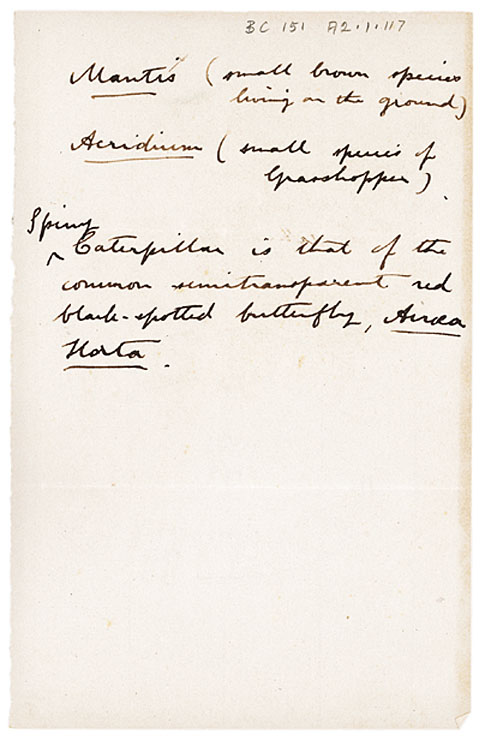 BC 151 A2.1.117
Mantis (small brown species
living on the ground)
Acridium (small species of
Grasshopper).
Spiny
^ Caterpillar is that of the
common semitransparent red
black-spotted butterfly, Acræa
Horta.